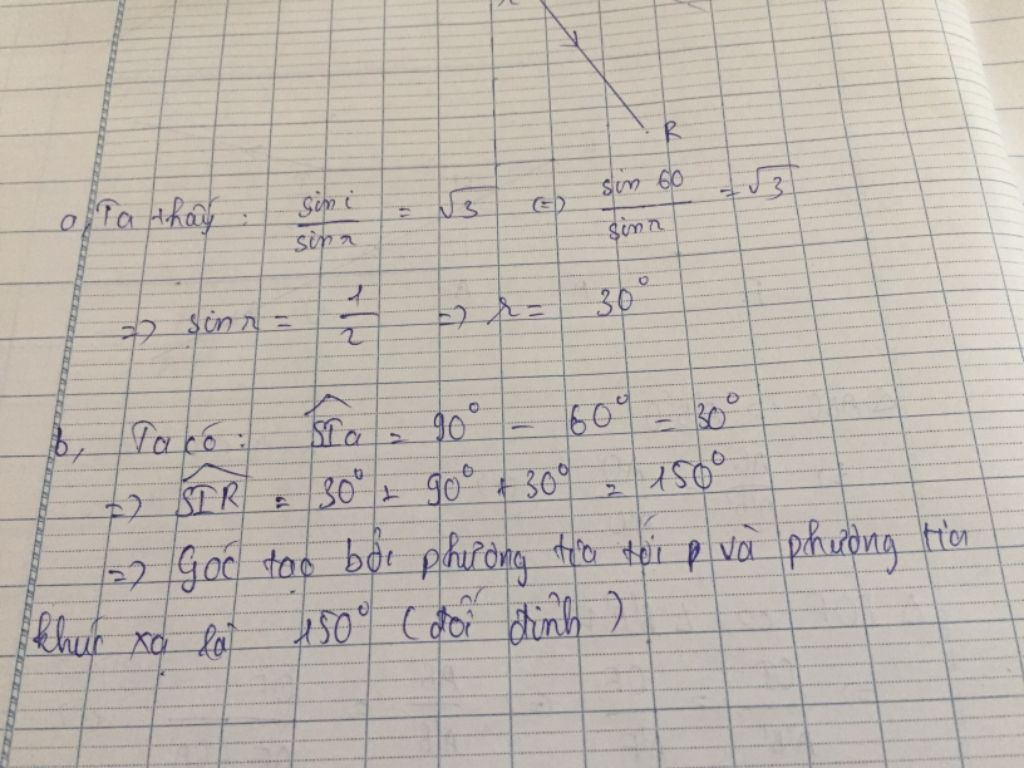 R
a, Ta thấy: sin i / sin r = √3 (=) sin 60 / sin r = √3
=> sin r = 1/2 => r = 30°
b, Ta có: SIa = 90° - 60° = 30°
=> SIR = 30° + 90° + 30° = 150°
=> Góc tạo bởi phương tia tới và phương tia
khúc xạ là 150° (đối đỉnh)